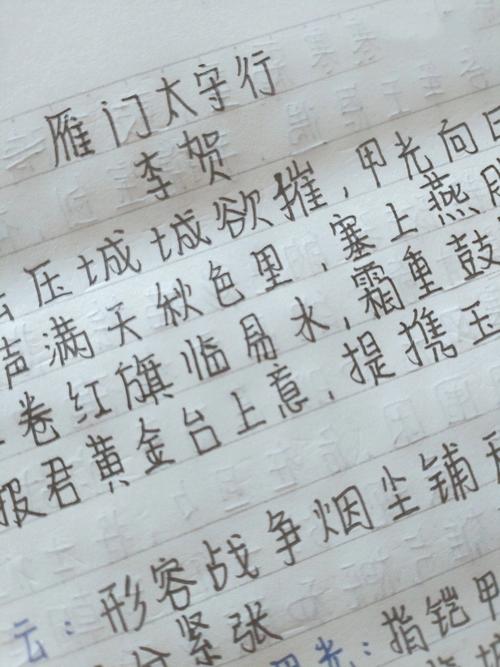 雁门太守行
李贺
云压城城欲摧，甲光向日
声满天秋色里，塞上燕
卷红旗临易水，霜重鼓
报君黄金台上意，提携玉
云：形容战争烟尘铺天
紧张
甲光：指铠甲